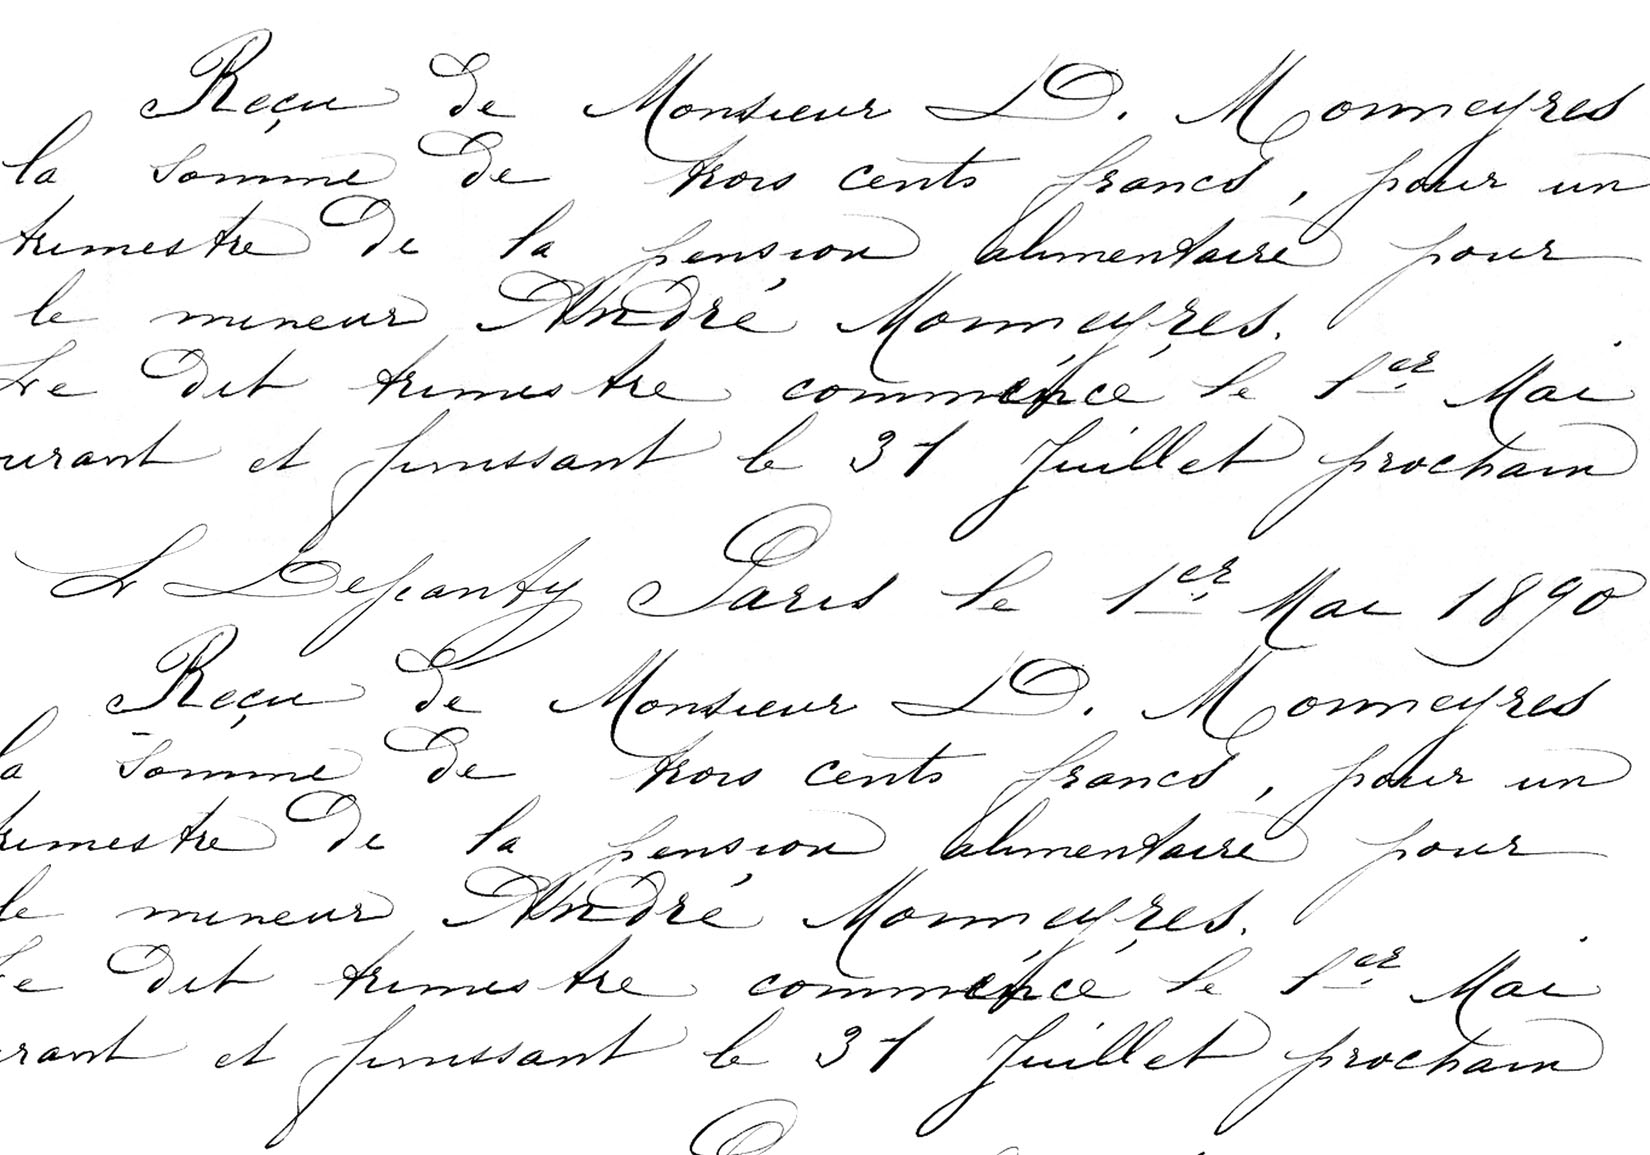 Reçu de Monsieur D. Monneyres
la Somme de trois cents francs, pour un
trimestre de la pension alimentaire pour
le mineur André Monneyres.
Le dit trimestre commencé le 1er Mai
urant et finissant le 31 Juillet prochain
Paris le 1er Mai 1890
Reçu de Monsieur D. Monneyres
la Somme de trois cents francs, pour un
trimestre de la pension alimentaire pour
le mineur André Monneyres.
Le dit trimestre commencé le 1er Mai
rant et finissant le 31 Juillet prochain